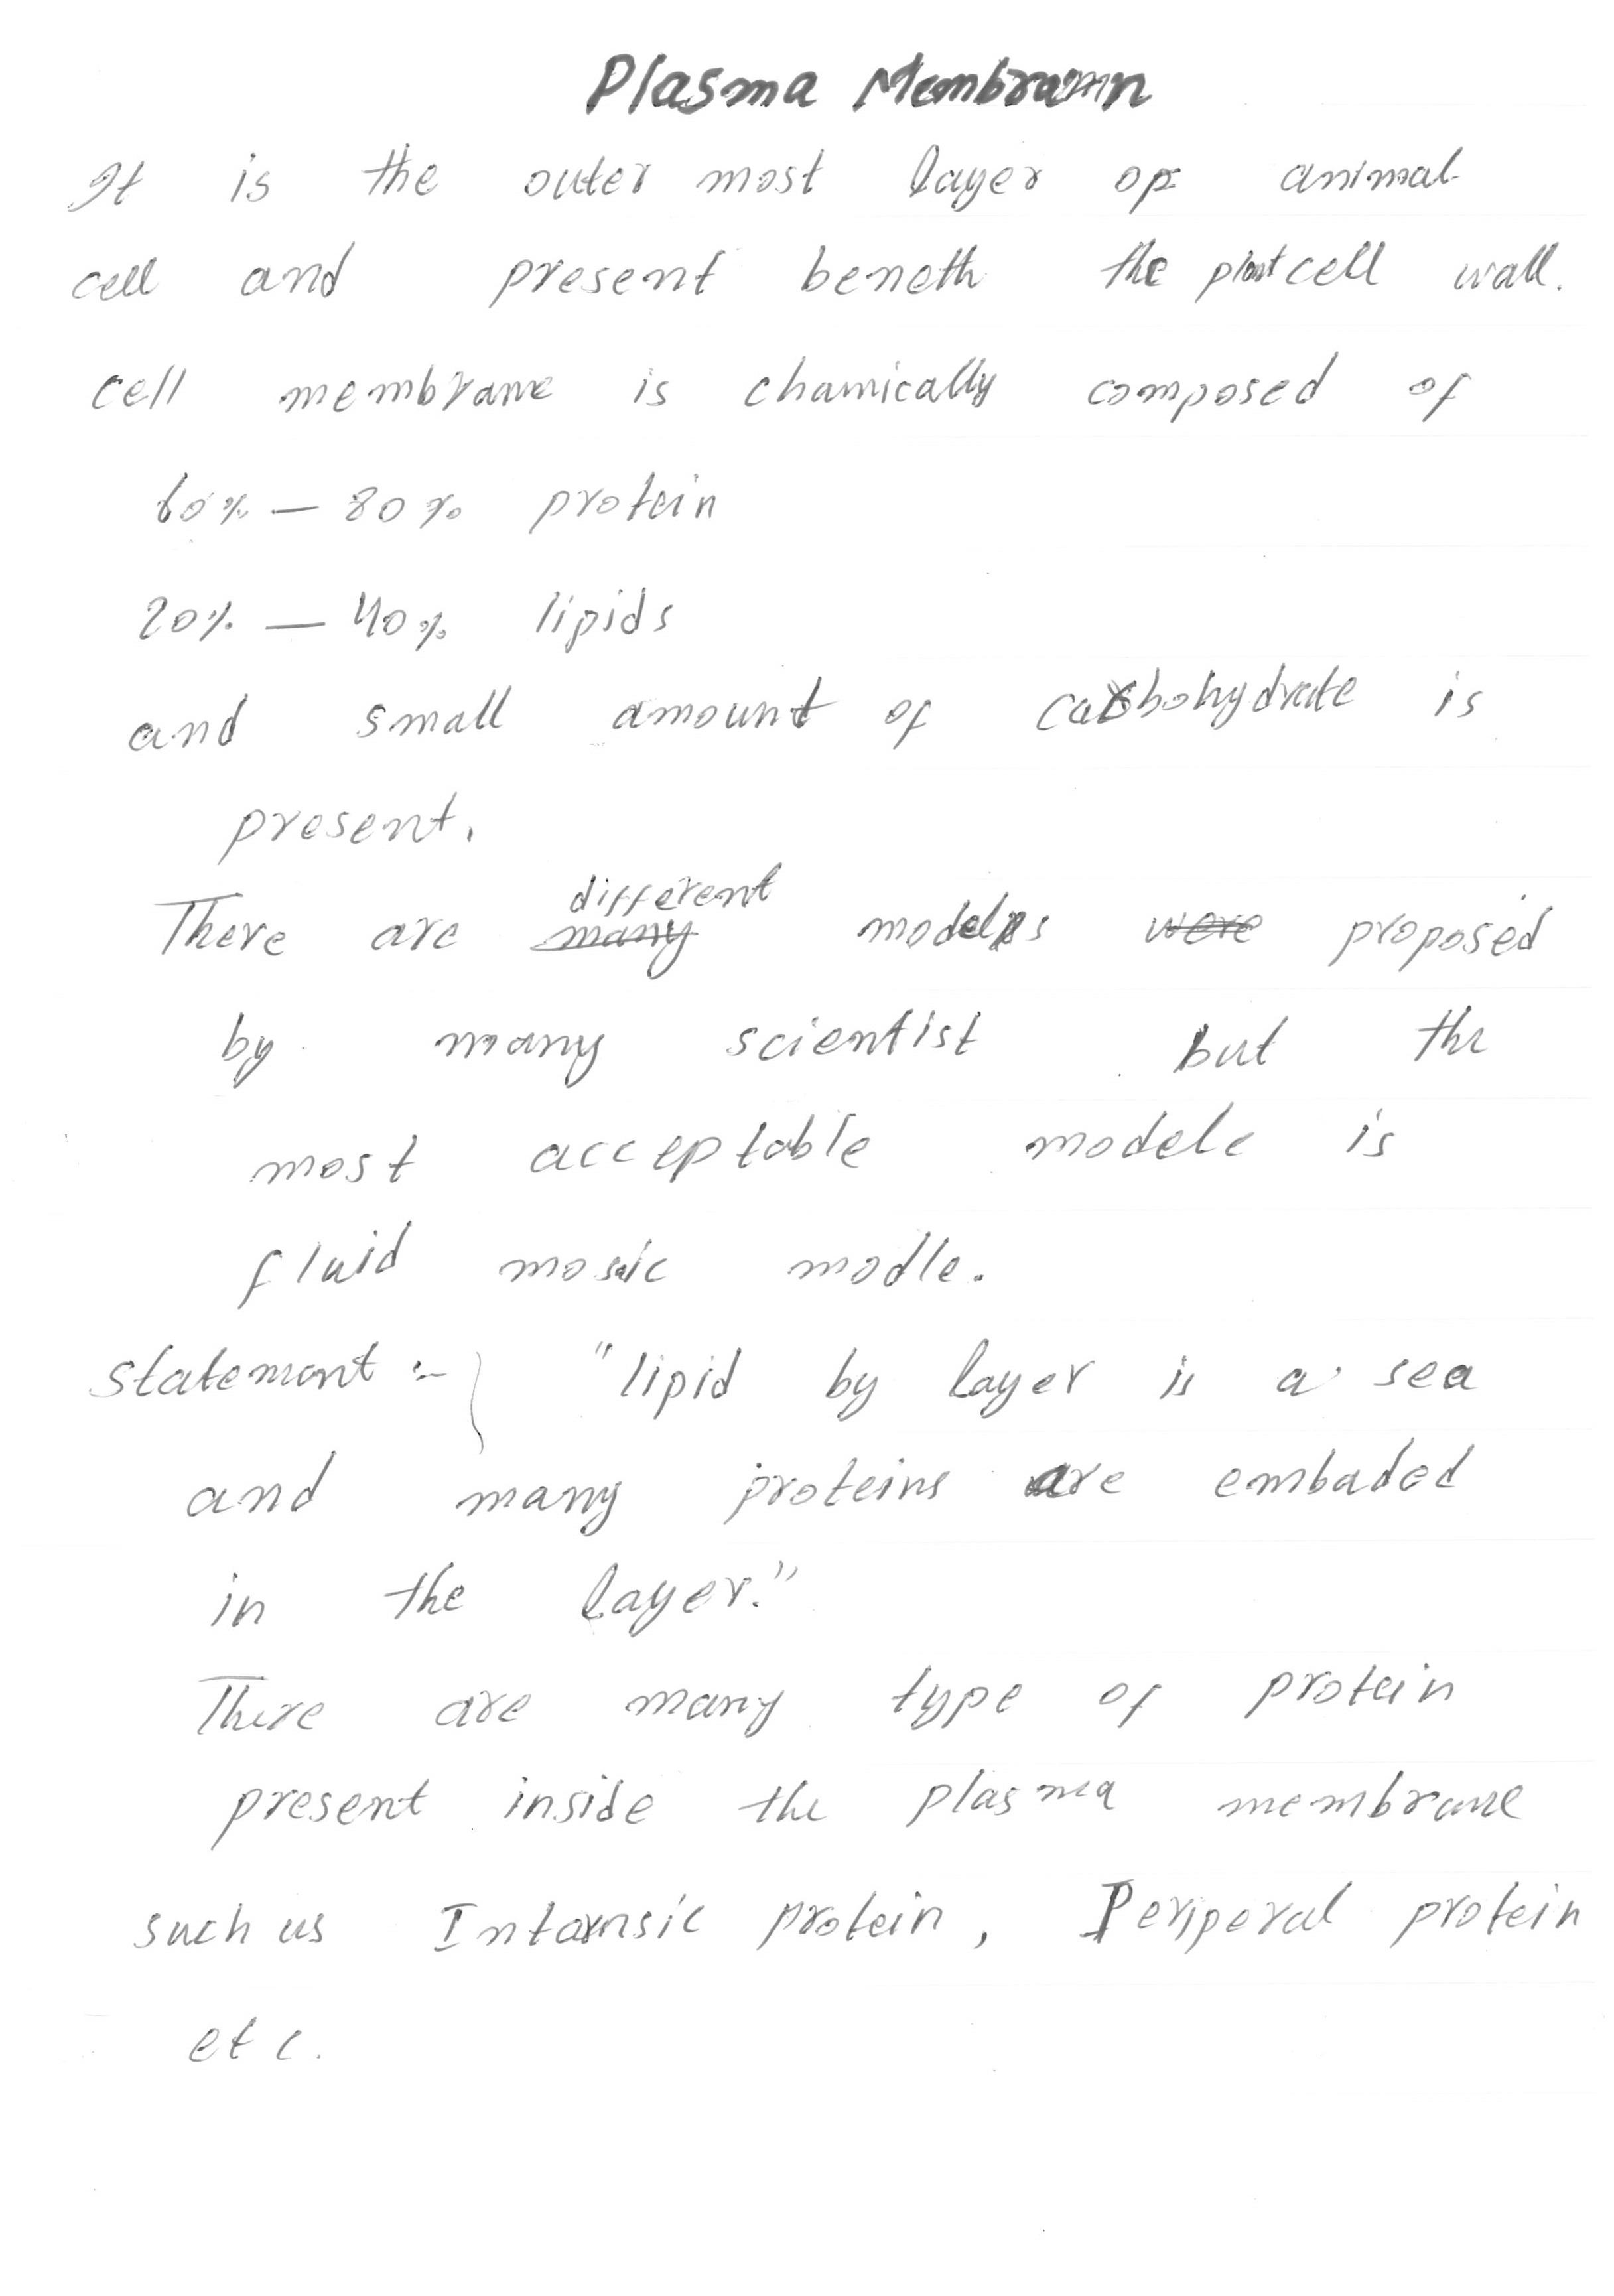 Plasma Membramn
It is the outer most layer of animal
cell and present beneth the plant cell wall.
cell membrane is chamically composed of
60% — 80% protein
20% — 40% lipids
and small amount of carbohydrate is
present.
There are many different models were proposed
by many scientist but the
most acceptable modele is
fluid mosaic modle.
Statemant :- "lipid by layer is a sea
and many proteins are embaded
in the layer."
There are many type of protein
present inside the plasma membrane
such us Intarnsic protein, Periperal protein
etc.